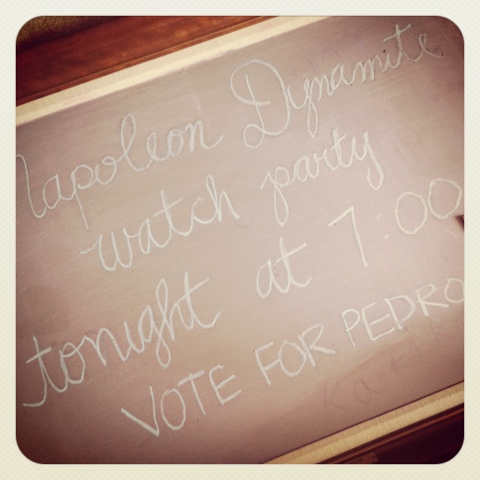 Napoleon Dynamite
watch party
tonight at 7:00
VOTE FOR PEDRO